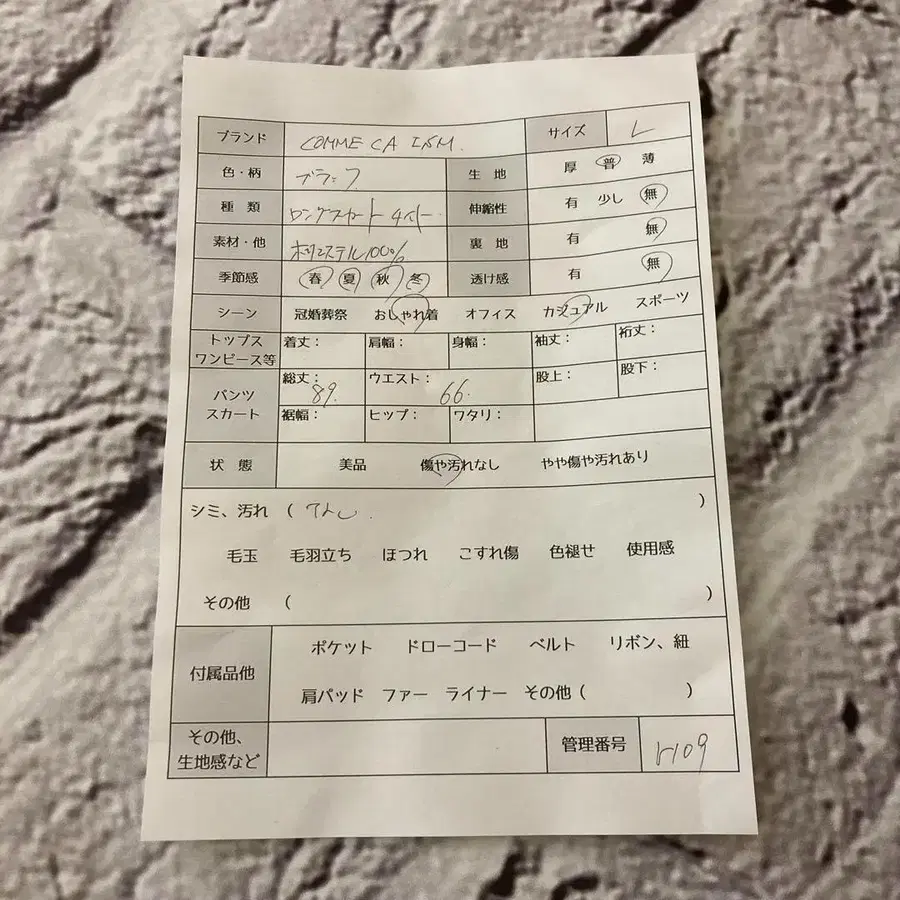 ブランド COMME CA ISM. サイズ L
色・柄 ブラック 生 地 厚 普 薄
種 類 ロングスカート 伸縮性 有 少し 無
素材・他 ポリエステル100% 裏 地 有 無
季節感 春 夏 秋 冬 透け感 有 無
シーン 冠婚葬祭 おしゃれ着 オフィス カジュアル スポーツ
トップス
ワンピース等 着丈: 肩幅: 身幅: 袖丈: 裄丈:
パンツ
スカート 総丈: 89. ウエスト: 66. 股上: 股下:
裾幅: ヒップ: ワタリ:
状 態 美品 傷や汚れなし やや傷や汚れあり
シミ、汚れ ( なし. )
毛玉 毛羽立ち ほつれ こすれ傷 色褪せ 使用感
その他 ( )
付属品他 ポケット ドローコード ベルト リボン、紐
肩パッド ファー ライナー その他 ( )
その他、
生地感など 管理番号 r109